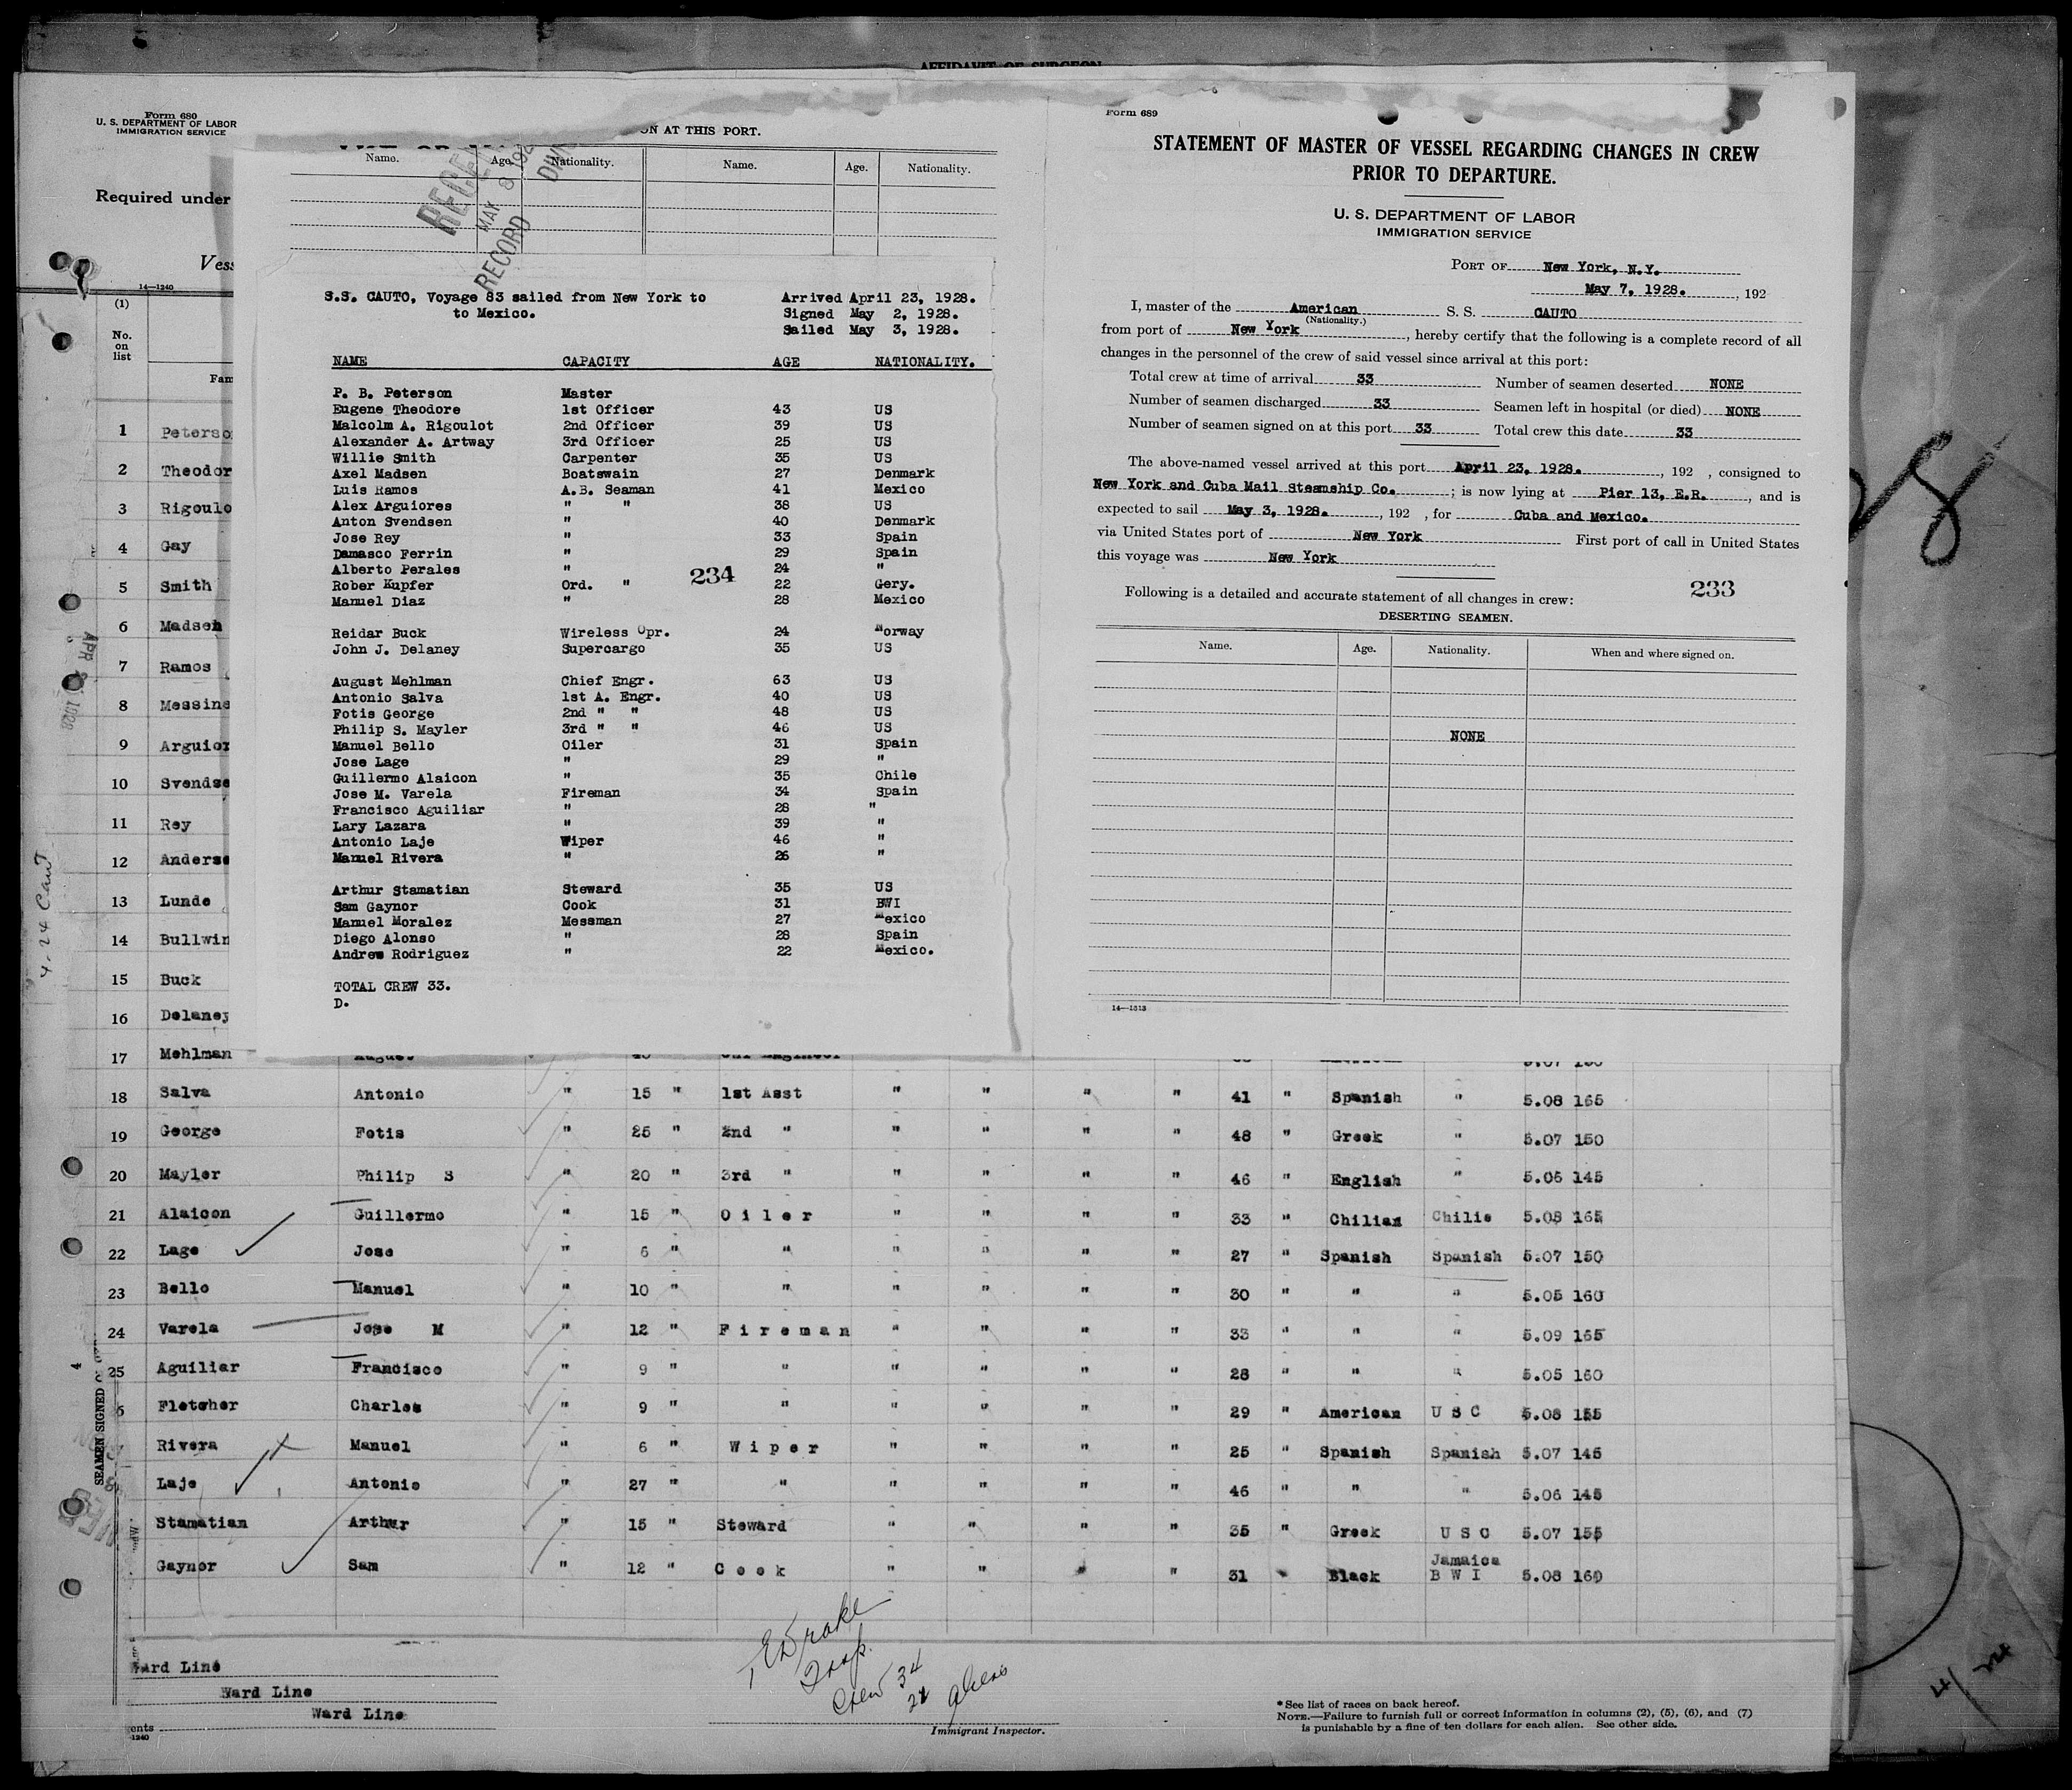 AFFIDAVIT OF SURGEON
Form 680
U. S. DEPARTMENT OF LABOR
IMMIGRATION SERVICE
Required under
Vess
14—1240
(1)
No.
on
list
Fam
1 Peterso
2 Theodor
3 Rigoulo
4 Gay
5 Smith
6 Madsen
7 Ramos
8 Messine
9 Arguior
10 Svendse
11 Rey
12 Anderse
13 Lunde
14 Bullwin
15 Buck
16 Delaney
17 Mehlman
ON AT THIS PORT.
Name. Age. Nationality. Name. Age. Nationality.
MAY 8 192
RECORD
DIVI
S.S. CAUTO, Voyage 83 sailed from New York to Arrived April 23, 1928.
to Mexico. Signed May 2, 1928.
Sailed May 3, 1928.
NAME CAPACITY AGE NATIONALITY.
P. B. Peterson Master
Eugene Theodore 1st Officer 43 US
Malcolm A. Rigoulot 2nd Officer 39 US
Alexander A. Artway 3rd Officer 25 US
Willie Smith Carpenter 35 US
Axel Madsen Boatswain 27 Denmark
Luis Ramos A.B. Seaman 41 Mexico
Alex Arguiores " " 38 US
Anton Svendsen " 40 Denmark
Jose Rey " 33 Spain
Damasco Ferrin " 29 Spain
Alberto Perales " 24 "
Rober Kupfer Ord. " 22 Gery.
Manuel Diaz " 28 Mexico
234
Reidar Buck Wireless Opr. 24 Norway
John J. Delaney Supercargo 35 US
August Mehlman Chief Engr. 63 US
Antonio Salva 1st A. Engr. 40 US
Fotis George 2nd " " 48 US
Philip S. Mayler 3rd " " 46 US
Manuel Bello Oiler 31 Spain
Jose Lage " 29 "
Guillermo Alaicon " 35 Chile
Jose M. Varela Fireman 34 Spain
Francisco Aguiliar " 28 "
Lary Lazara " 39 "
Antonio Laje Wiper 46 "
Manuel Rivera " 26 "
Arthur Stamatian Steward 35 US
Sam Gaynor Cook 31 BWI
Manuel Moralez Messman 27 Mexico
Diego Alonso " 28 Spain
Andrew Rodriguez " 22 Mexico.
TOTAL CREW 33.
D.
Form 689
STATEMENT OF MASTER OF VESSEL REGARDING CHANGES IN CREW
PRIOR TO DEPARTURE.
U. S. DEPARTMENT OF LABOR
IMMIGRATION SERVICE
PORT OF New York, N.Y.
May 7, 1928. , 192
I, master of the American S. S. CAUTO
(Nationality.)
from port of New York , hereby certify that the following is a complete record of all
changes in the personnel of the crew of said vessel since arrival at this port:
Total crew at time of arrival 33 Number of seamen deserted NONE
Number of seamen discharged 33 Seamen left in hospital (or died) NONE
Number of seamen signed on at this port 33 Total crew this date 33
The above-named vessel arrived at this port April 23, 1928. , 192 , consigned to
New York and Cuba Mail Steamship Co. ; is now lying at Pier 13, E.R. , and is
expected to sail May 3, 1928. , 192 , for Cuba and Mexico.
via United States port of New York First port of call in United States
this voyage was New York
233
Following is a detailed and accurate statement of all changes in crew:
DESERTING SEAMEN.
Name. Age. Nationality. When and where signed on.
NONE
14—1313
18 Salva Antonio " 15 " 1st Asst " " " " 41 " Spanish " 5.08 165
19 George Fotis " 25 " 2nd " " " " " 48 " Greek " 5.07 150
20 Mayler Philip S " 20 " 3rd " " " " " 46 " English " 5.06 145
21 Alaicon Guillermo " 15 " Oiler " " " " 33 " Chilian Chilie 5.08 165
22 Lage Jose " 6 " " " " " " 27 " Spanish Spanish 5.07 150
23 Bello Manuel " 10 " " " " " " 30 " " " 5.05 160
24 Varela Jose M " 12 " Fireman " " " " 33 " " " 5.09 165
25 Aguiliar Francisco " 9 " " " " " " 28 " " " 5.05 160
Fletcher Charles " 9 " " " " " " 29 " American U S C 5.08 155
Rivera Manuel " 6 " Wiper " " " " 25 " Spanish Spanish 5.07 145
Laje Antonio " 27 " " " " " " 46 " " " 5.06 145
Stamatian Arthur " 15 " Steward " " " " 35 " Greek U S C 5.07 155
Gaynor Sam " 12 " Cook " " " " 31 " Black Jamaica
B W I 5.08 160
SEAMEN SIGNED
Ward Line
Ward Line
Ward Line
ents
-1240
Crew 34
Aliens
Immigrant Inspector.
*See list of races on back hereof.
NOTE.—Failure to furnish full or correct information in columns (2), (5), (6), and (7)
is punishable by a fine of ten dollars for each alien. See other side.
28
4/24